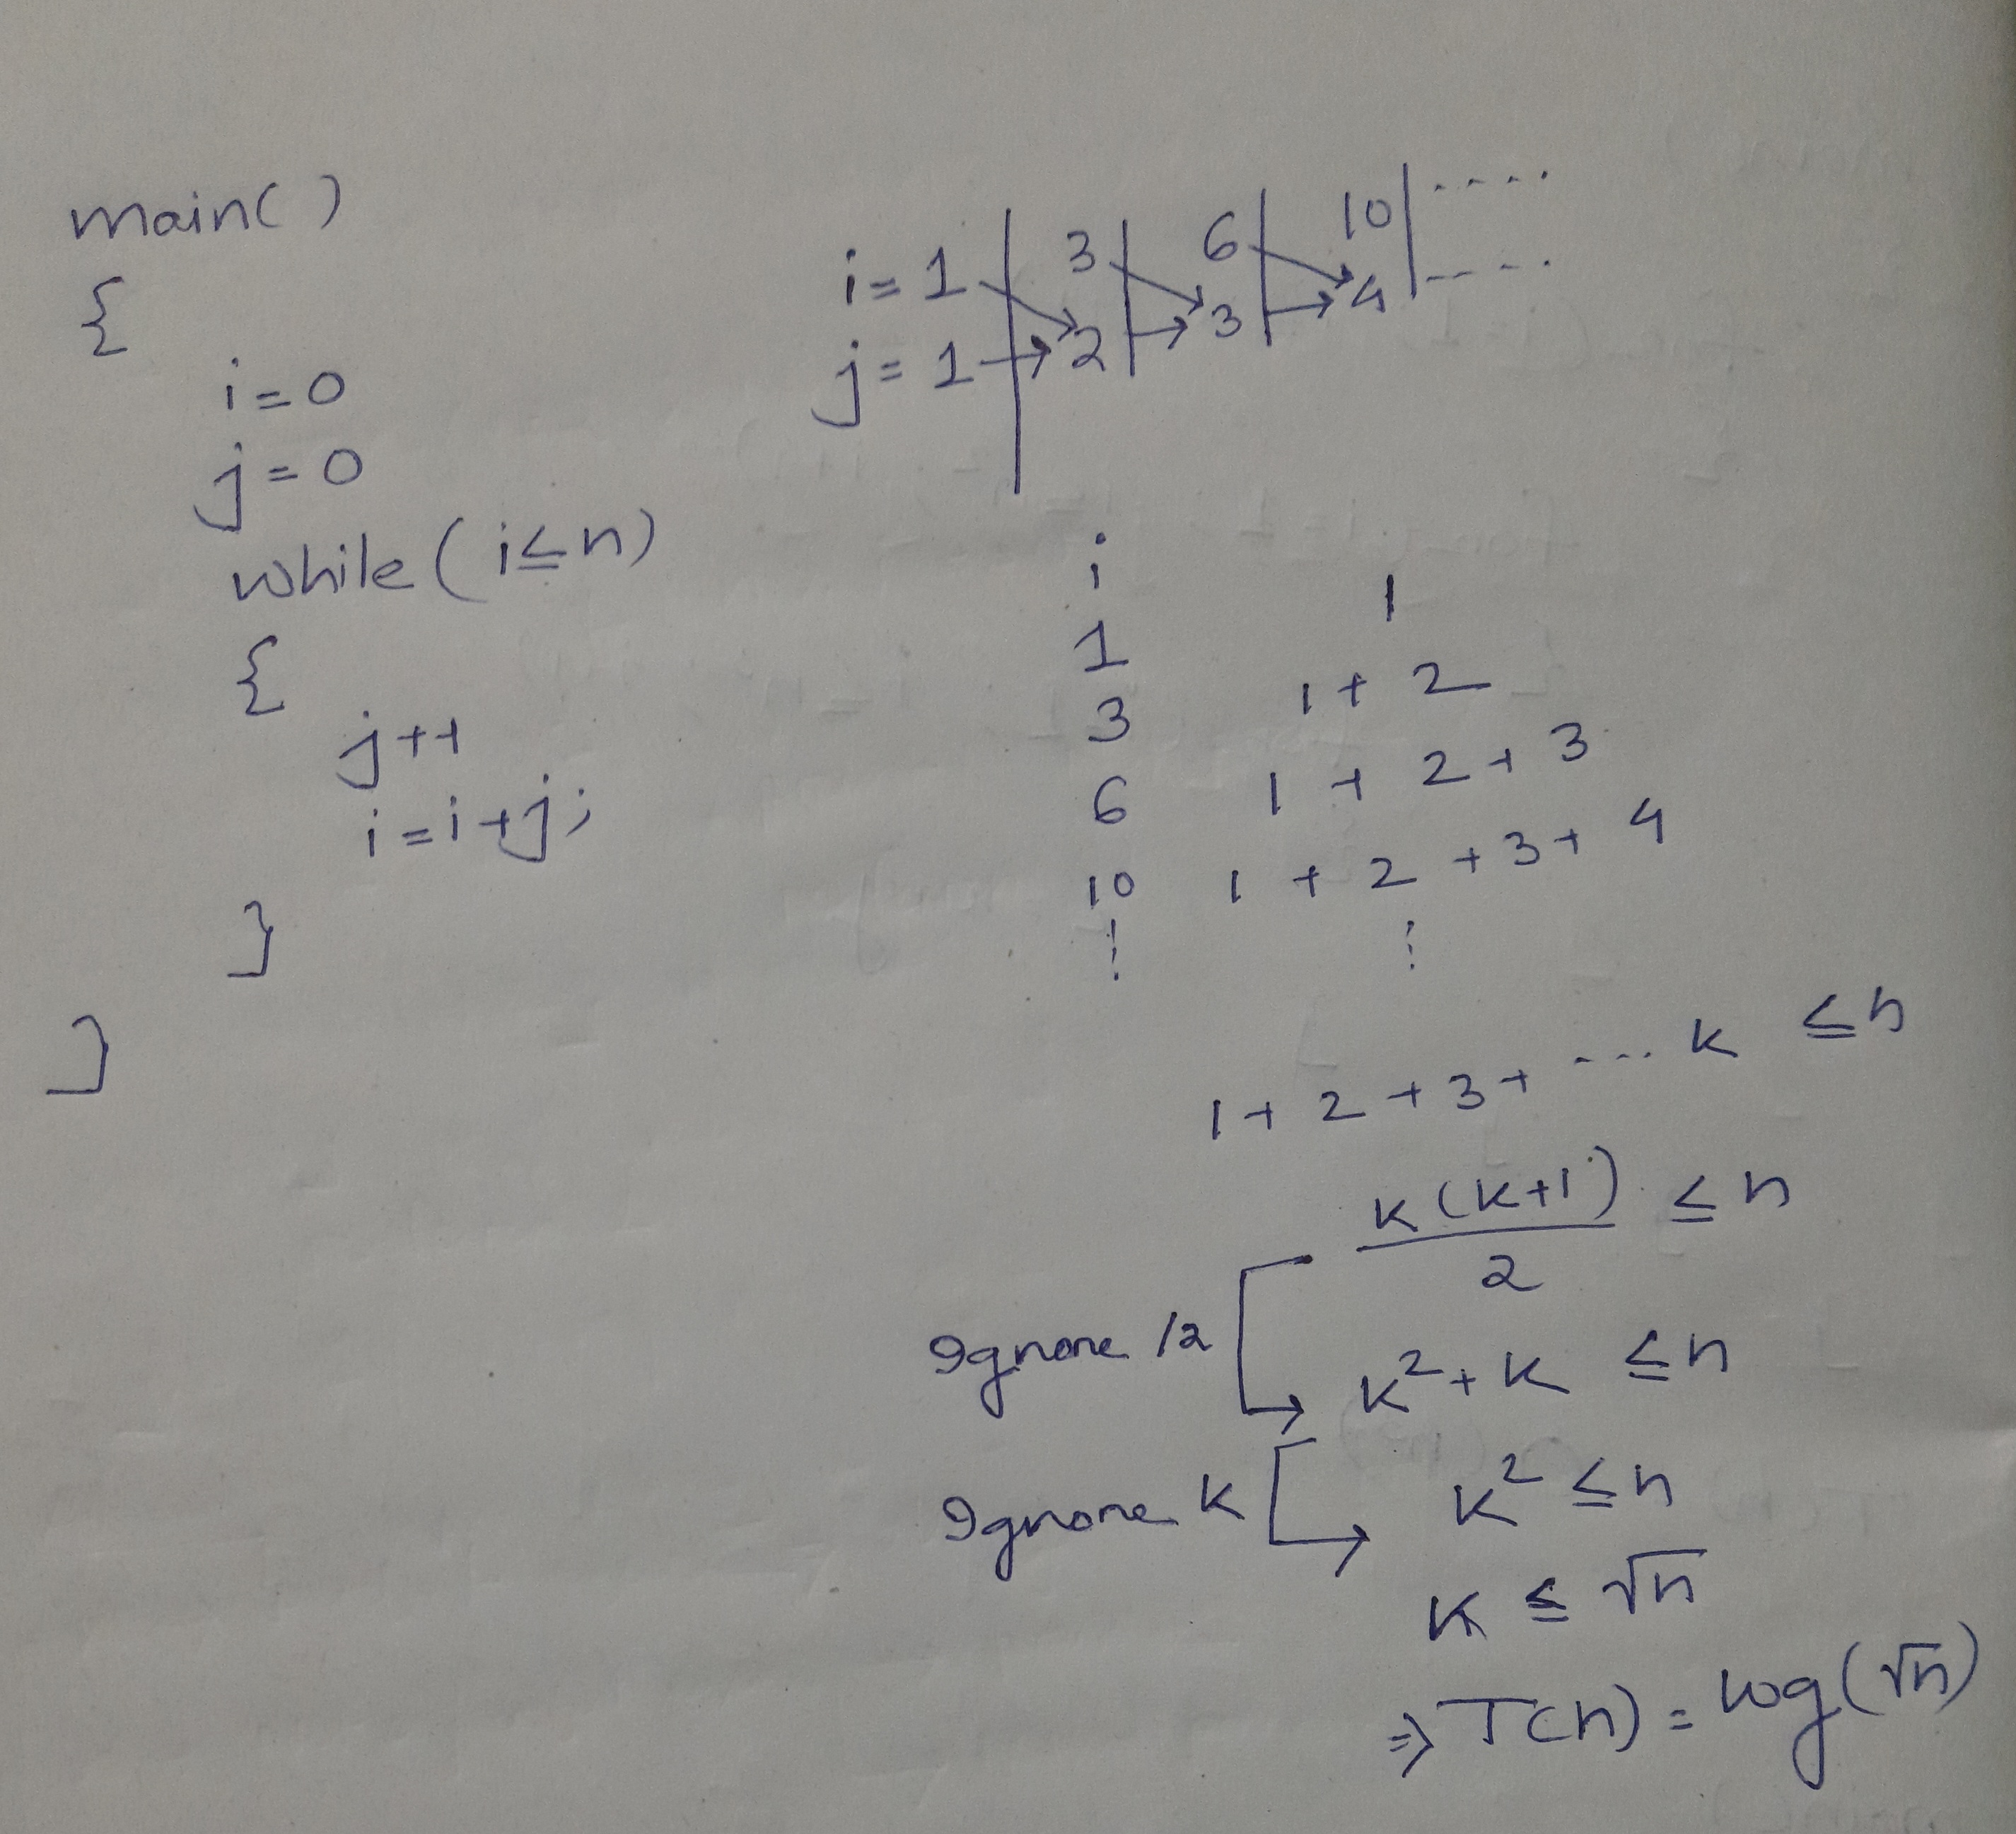 main()
{
i=0
j=0
while(i≤n)
{
j++
i=i+j;
}
}
i=1 | 3 | 6 | 10 | ....
j=1 → 2 | → 3 | → 4 | ....
i
1 1
3 1+2
6 1+2+3
10 1+2+3+4
⋮ ⋮
1+2+3+....k ≤n
k(k+1)/2 ≤n
Ignore /2
k²+k ≤n
Ignore k
k² ≤n
k ≤ √n
⇒ T(n) = log(√n)